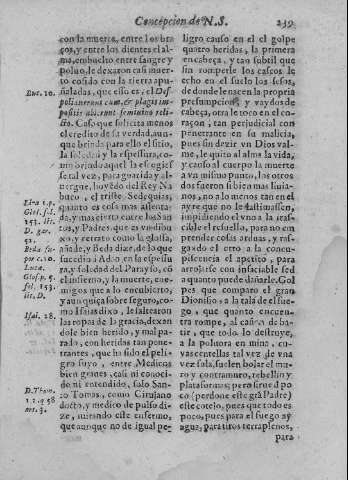 Concepcion de N. S. 239
con la muerte, entre los bra
ços, y entre los dientes el al-
ma, embuelto entre sangre y
poluo, le dexaron casi muer
to cosido con la tierra a pu-
ñaladas, que esso es, el Des-
poliauerunt eum, & plagis im-
positis abierunt semiuiuo reli-
cto. Caso que solicita menos
el credito de su verdad, aun-
que brinda para ello el sitio,
la soledad y la espessura, co-
mo
tal vez, para guarida y al-
bergue, huyédo del Rey Na
buco, el triste Sedequias,
quanto es cosa mas assenta-
da, y mas cierto entre los San
tos, y Padres, que es vn dibu
xo, y retrato como la glossa,
añade, y Beda dize, de lo que
sucedio a Adan, en la espessu
ra, y soledad del Parayso, cõ
el infierno, y la muerte, ene-
migos que a lo encubierto,
y aun quiça sobre seguro, co-
mo Isaias dixo, le saltearon
las ropas de la gracia, dexan
dole bien herido, y mal pa-
rado, con heridas tan pene-
trantes, que ha sido el peli-
gro suyo, entre Medicos
bien graues, casi ni conoci-
do ni entendido, solo San-
to Tomas, como Cirujano
docto, y medico de pulso di-
ze, mirando este enfermo,
que aunque no de igual pe-
Luc. 10.
Glos.
153. lit.
D.
52.
Beda su-
por c. 10.
Lucæ.
Glos. p. 5.
fol. 153.
lit. D.
Isai. 28.
D. Thom.
1. 2. q 58
art. 3.
ligro causo en el el golpe
quatro heridas, la primera
en cabeça, y tan subtil que
sin romperle los cascos le
echo en el suelo los sesos,
de donde le nacen la propria
presumpcion, y vaydos de
cabeça, otra le toco en el co-
raçon, tan perjudicial con
penetrante en su malicia,
pues sin dezir vn Dios val-
me, le quito al alma la vida,
y causo al cuerpo la muerte
a vn mismo punto, las otros
dos fueron si bien mas liuia-
nas, no a lo menos tan en el
ayre que no le lastimassen,
impidiendo el vno la iras-
cible el resuello, para no em
prender cosas arduas, y ras-
gando el otro a la concu-
piscencia el apetito, para
arrojarse con insaciable sed
a quanto puede dañarle. Gol
pes que comparo el gran
Dionisio, a la tala de el fue-
go, que quanto encuentra
rompe, al cañon de ba-
tir, que todo lo destruye,
a la poluora en mina, cu-
yas centellas tal vez de vna
vez sola, suelen bolar el mu-
ro y contramuro, rebellin y
plataformas; pero sirue de po
co (perdone este grã Padre)
este cotejo, pues que todo es
poco, pues para el fuego ay
agua, para tiros terraplenos,
para